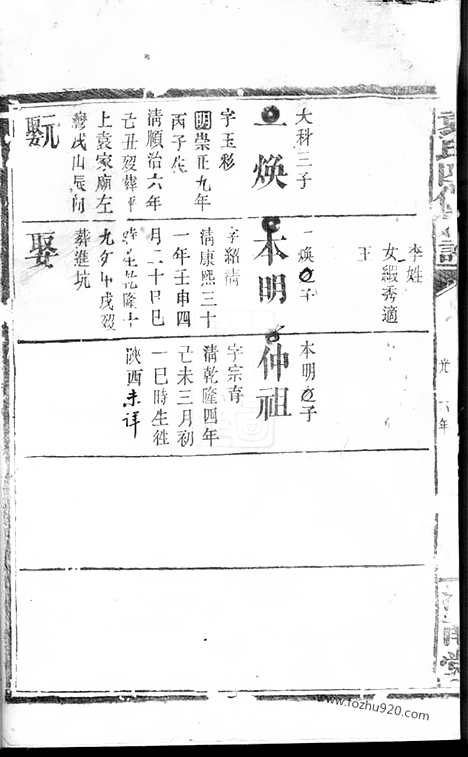 李姓
女緞秀適
王
大科三子
一煥
字玉彩
明崇正九年
丙子生
清順治六年
己丑歿葬
上袁家廟左
戌山辰向
元
娶
一煥子
本明
字紹淸
清康熙三十
一年壬申四
月二十日巳
時生乾隆十
九年甲戌歿
葬進坑
娶
本明子
仲祖
字宗育
清乾隆四年
己未三月初
一巳時生往
陝西未详
光
六年
www.fozhu920.com